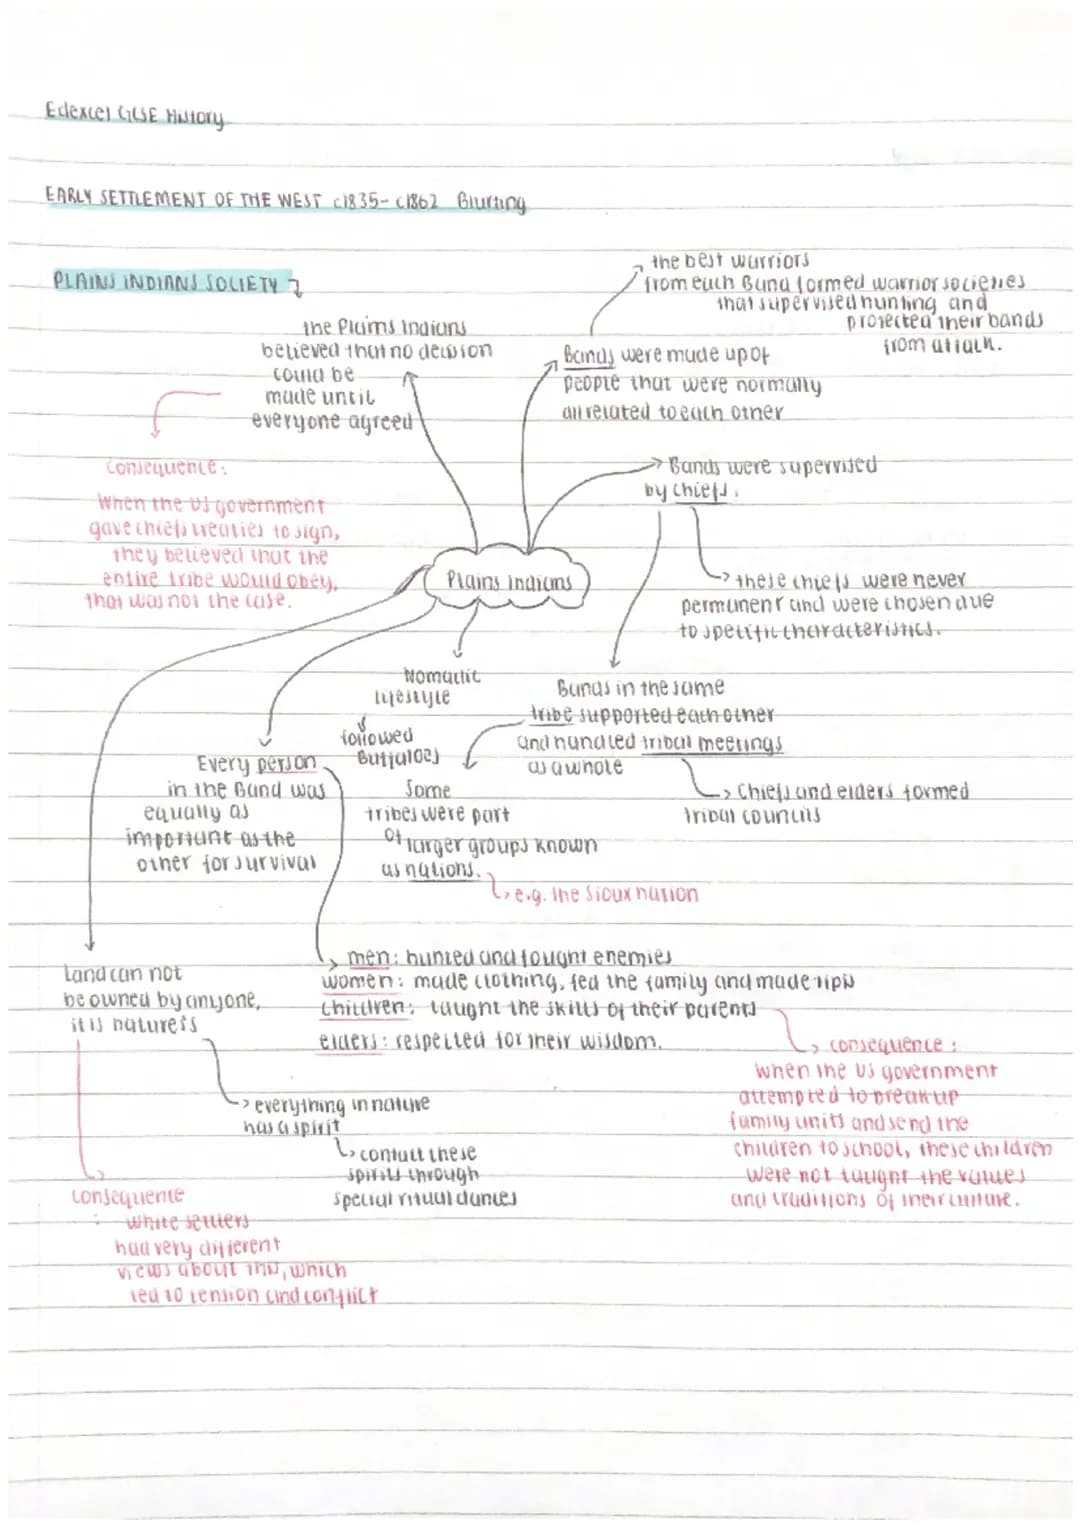 Edexcel GCSE History
EARLY SETTLEMENT OF THE WEST c1835- c1862 Blurting
PLAINS INDIANS SOCIETY
the Plains Indians
believed that no decision
could be
made until
everyone agreed
Consequence:
When the US government
gave chiefs treaties to sign,
they believed that the
entire tribe would obey,
that was not the case.
the best warriors
from each Band formed warrior societies
that supervised hunting and
protected their bands
from attack.
Bands were made up of
people that were normally
all related to each other
Bands were supervised
by chiefs.
these chiefs were never
permanent and were chosen due
to specific characteristics.
Plains Indians
Nomadic
lifestyle
followed
Buffaloes
Bands in the same
tribe supported each other
and handled tribal meetings
as a whole
Chiefs and elders formed
tribal councils
Some
tribes were part
of larger groups known
as nations.
e.g. the Sioux nation
Every person
in the Band was
equally as
important as the
other for survival
men: hunted and fought enemies
women: made clothing, fed the family and made tipis
children: taught the skills of their parents
elders: respected for their wisdom.
consequence:
when the US government
attempted to break up
family units and send the
children to school, these children
were not taught the values
and traditions of their culture.
Land can not
be owned by anyone,
it is nature's
everything in nature
has a spirit
contact these
spirits through
special ritual dances
Consequence
: white settlers
had very different
views about this, which
led to tension and conflict